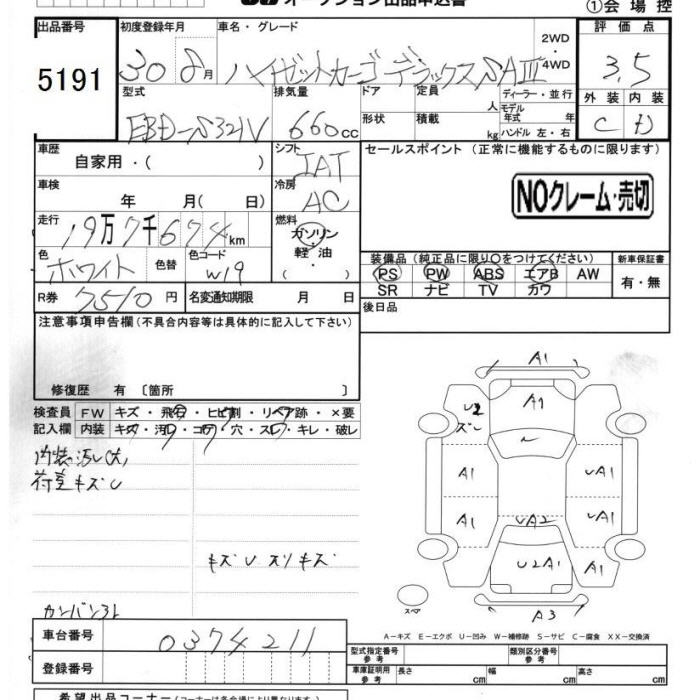 オークション出品申込書
①会場控
出品番号 5191
初度登録年月 30 8月
車名・グレード ハイゼットカーゴ デラックスSAⅢ
2WD・4WD
評価点 3.5
外装 内装
C D
型式 EBD-S321V
排気量 660cc
ドア 形状
定員 人
積載 kg
ディーラー・並行
モデル年式 年
ハンドル 左・右
車歴 自家用・( )
シフト IAT
セールスポイント (正常に機能するものに限ります)
NOクレーム・売切
車検 年 月( 日)
冷房 AC
走行 19万7千674km
燃料 ガソリン・軽油・( )
色 ホワイト 色替
色コード W19
装備品 (純正品に限り○をつけてください)
新車保証書
PS PW ABS エアB AW
SR ナビ TV カワ
有・無
R券 7510円
名変通知期限 月 日
後日品
注意事項申告欄 (不具合内容等は具体的に記入して下さい)
修復歴 有 〔箇所 〕
検査員記入欄
FW キズ・飛石・ヒビ割・リペア跡・×要
内装 キズ・汚レ・コゲ・穴・スレ・キレ・破レ
内装汚レ大
荷室キズU
キズU スリキズ
カンバントレ
A1
A1
U2
ズレ
A1
UA1
A1
UA1
UA2
U2A1
A1
A3
スペア
A-キズ E-エクボ U-凹み W-補修跡 S-サビ C-腐食 XX-交換済
車台番号 0374211
登録番号
型式指定番号 参考
類別区分番号 参考
車庫証明用 参考
長さ cm
幅 cm
高さ cm
希望出品コーナー